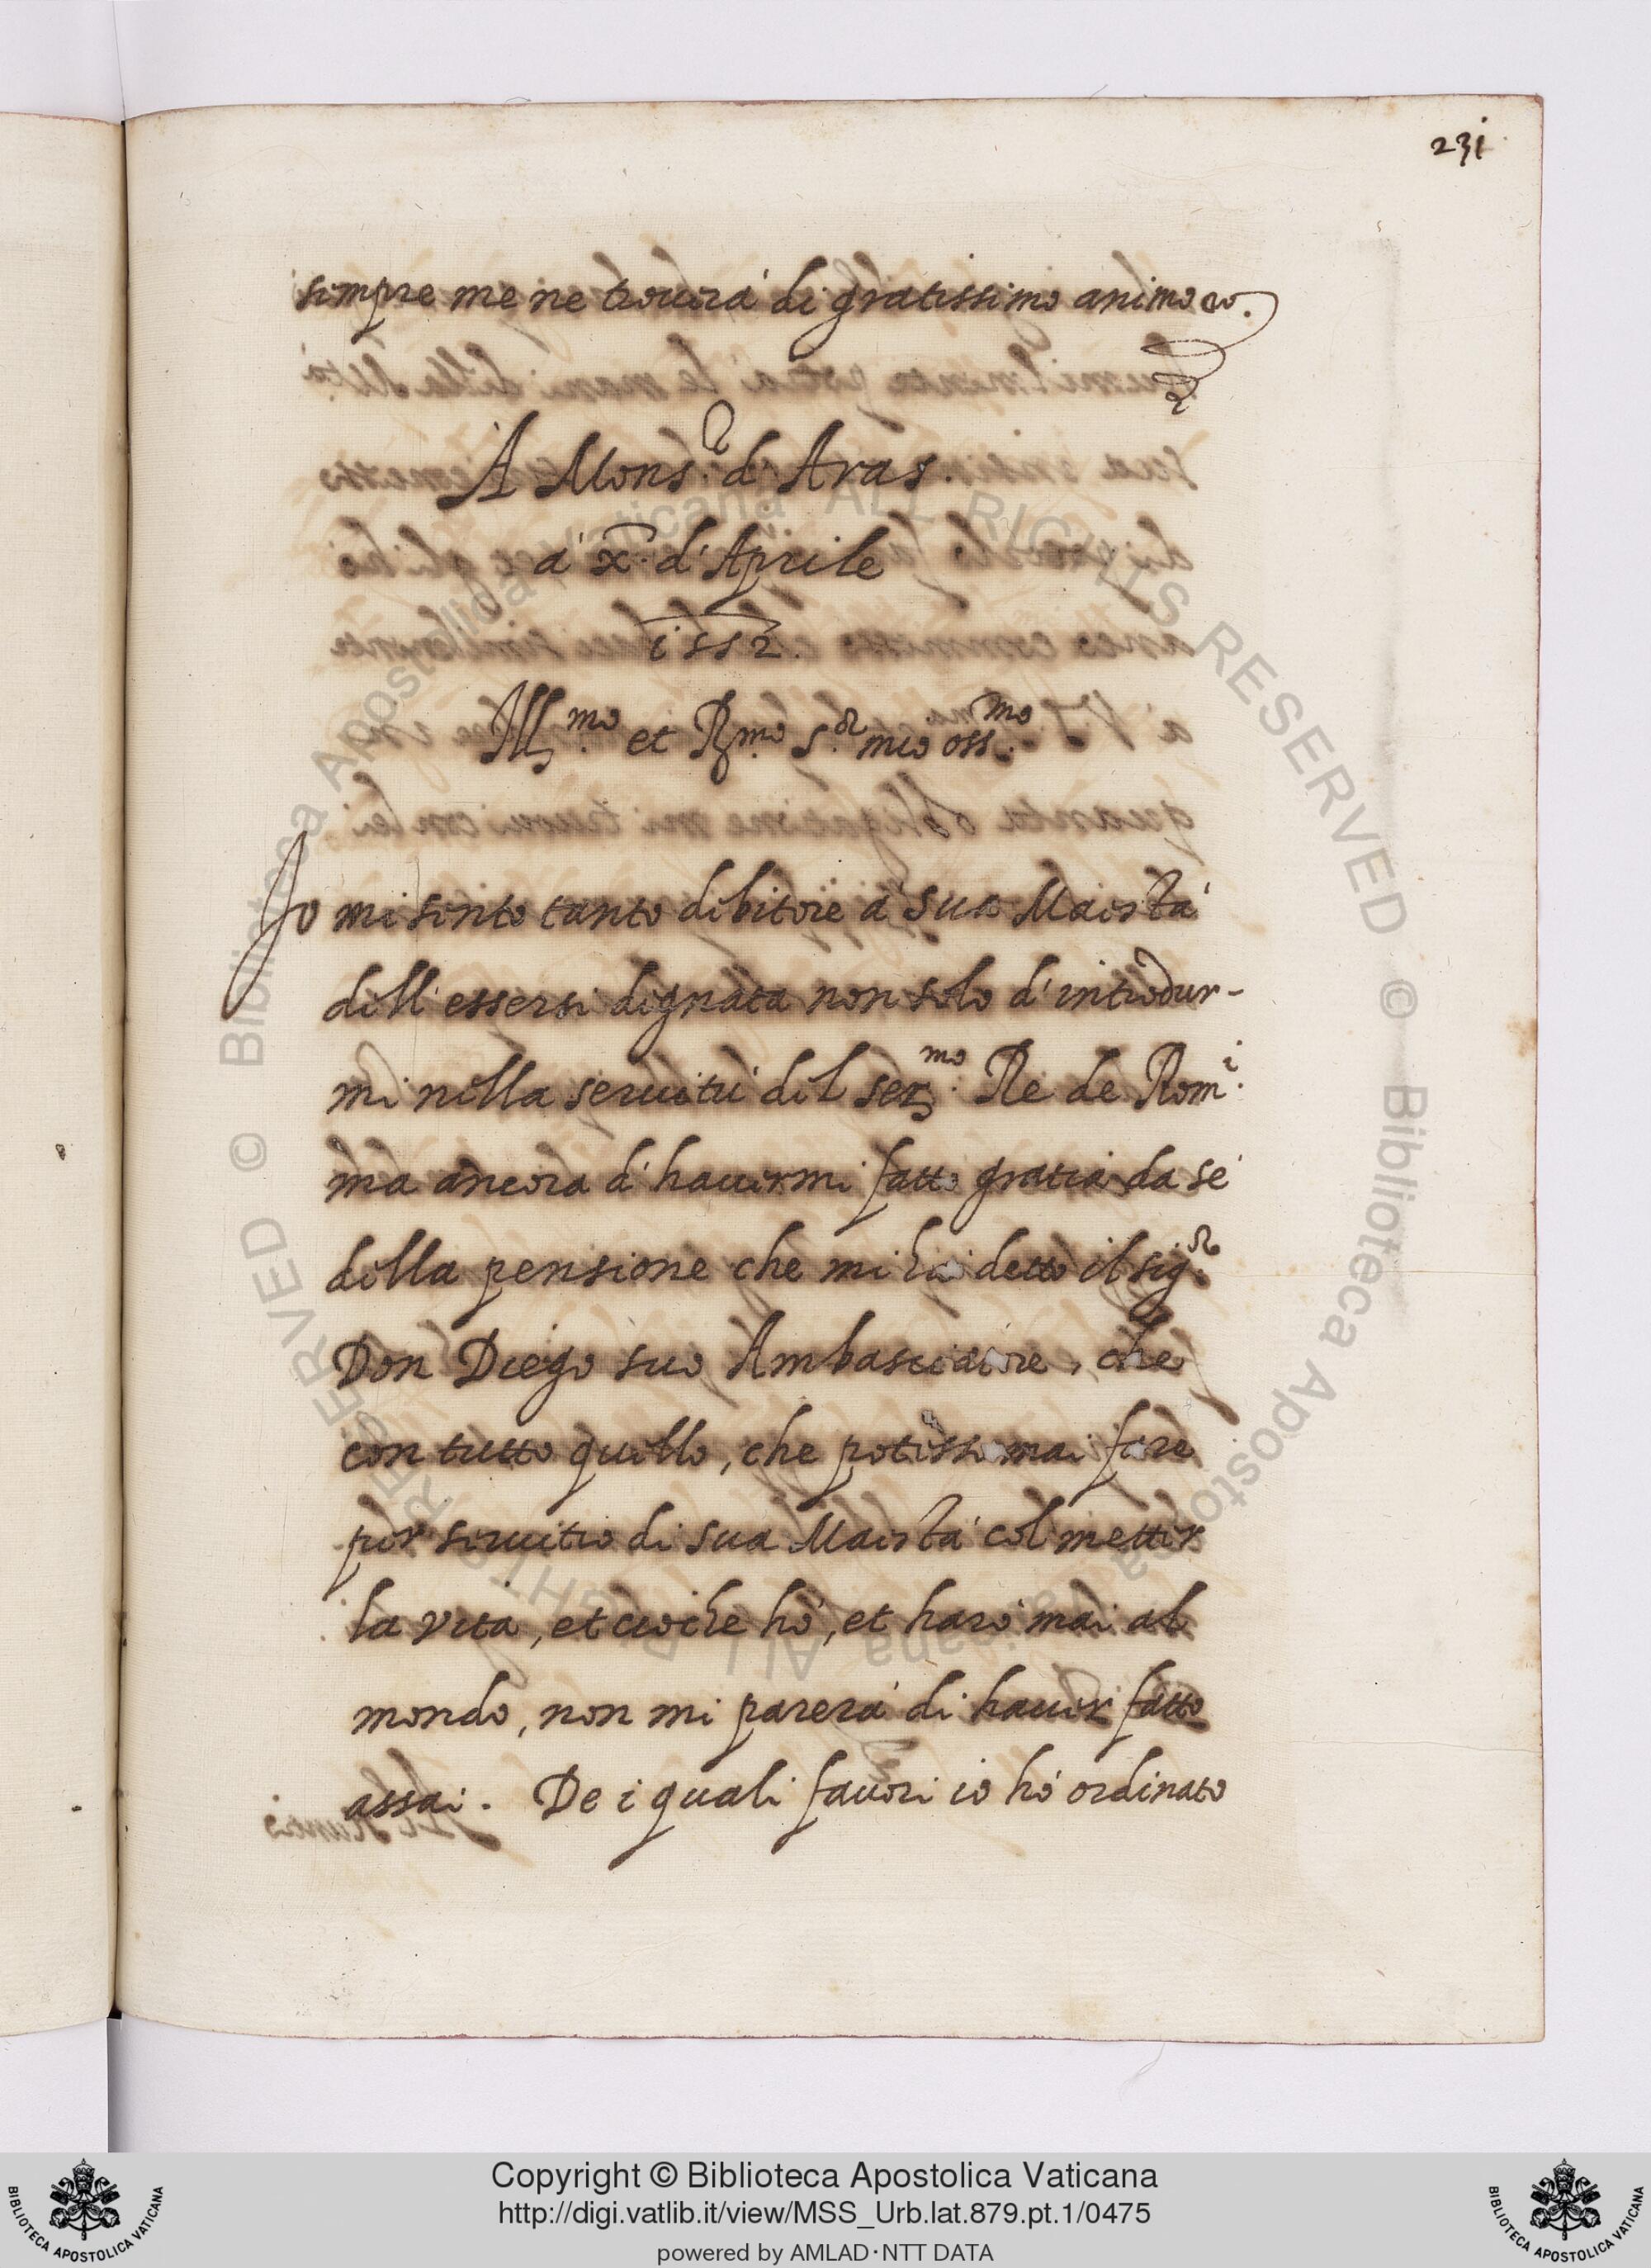 231
sempre me ne trouerà di gratissimo animo &c.
A Mons.r d'Aras.
a' x. d'Aprile
1552.
Ill.mo et R.mo S.or mio oss.mo
Io mi sento tanto debitore a' sua Maestà
dell'essersi dignata non solo d'introdur-
mi nella seruitù del Ser.mo Re de Rom.i
ma ancora d'hauermi fatto gratia da se
della pensione che mi ha detto il sig.or
Don Diego suo Ambasciatore, che
con tutto quello, che potessi mai fare
per seruitio di sua Maestà col metter
la vita, et cio che hò, et harò mai al
mondo, non mi parerà di hauer fatto
assai. De i quali fauori io hò ordinato
Copyright © Biblioteca Apostolica Vaticana
http://digi.vatlib.it/view/MSS_Urb.lat.879.pt.1/0475
powered by AMLAD·NTT DATA
BIBLIOTECA APOSTOLICA VATICANA
BIBLIOTECA APOSTOLICA VATICANA
© Biblioteca Apostolica Vaticana ALL RIGHTS RESERVED © Biblioteca Apostolica Vaticana ALL RIGHTS RESERVED